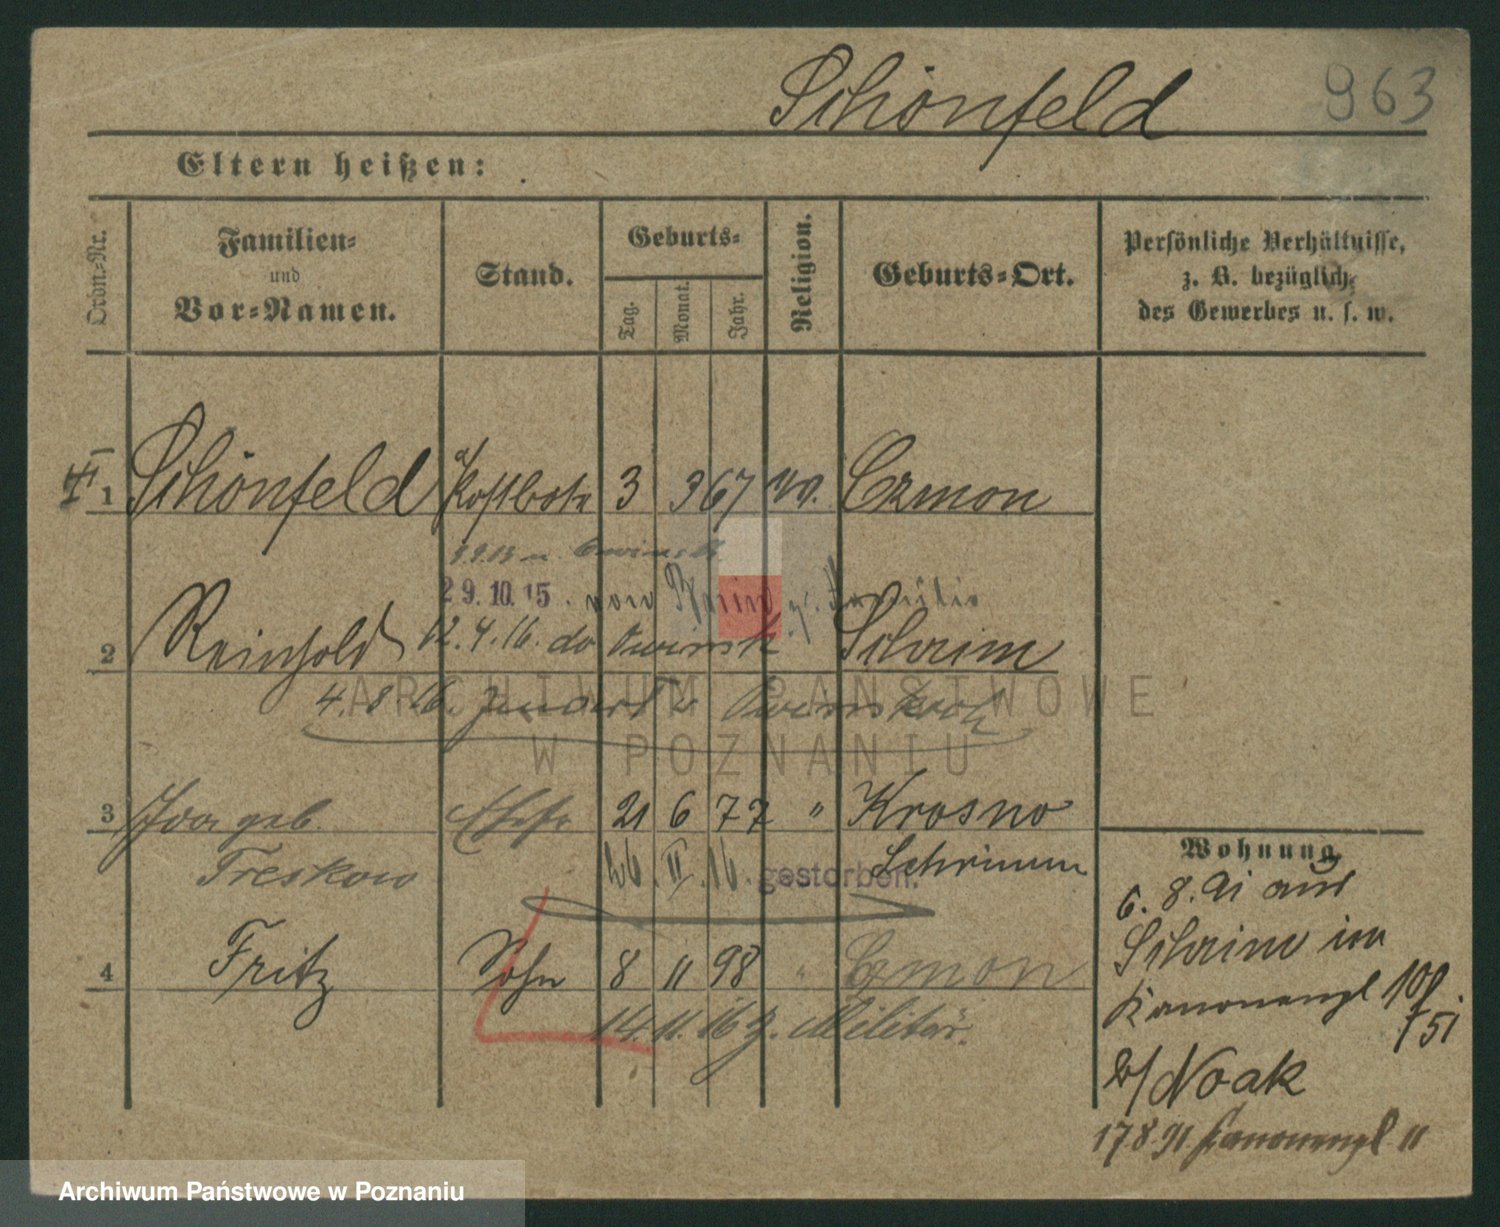 Schönfeld 963
Eltern heißen:
Ordn.-Nr.
Familien-
und
Vor-Namen.
Stand.
Geburts-
Tag.
Monat.
Jahr.
Religion.
Geburts-Ort.
Persönliche Verhältnisse,
z. B. bezüglich
des Gewerbes u. s. w.
1 Schönfeld 3 3 67 Czmon
29.10.15. von Familie
2 Reinhold 12.4.16. do Owinsk Schrim
4.8.16.
ARCHIWUM PAŃSTWOWE
W POZNANIU
3 Ida geb. Ehefr 21 6 77 " Krosno
Treskow 26.II.16. gestorben. Schrimm
4 Fritz Sohn 8 11 98 " Czmon
14.11.16 z. Militär.
Wohnung
6.8.91 aus
Schrim in
Kanonengl
b/Noak
17 8 91 Kanonengl 11
Archiwum Państwowe w Poznaniu